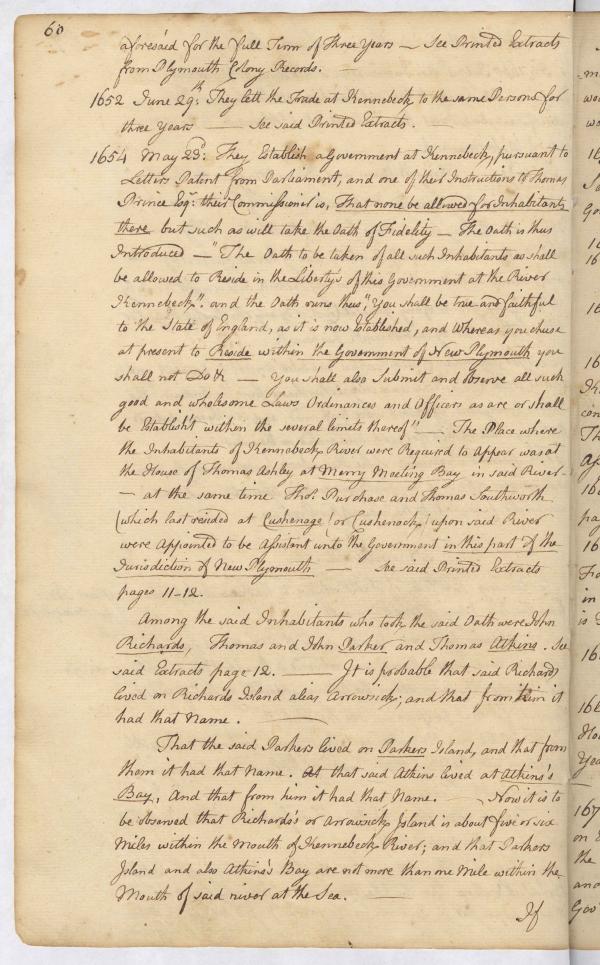 60
aforesaid for the full Term of Three Years — See Printed Extracts
from Plymouth Colony Records. —
1652 June 29th: They lett the Trade at Kennebeck to the same Persons for
three years —— See said Printed Extracts. —
1654 May 23d: They Establish a Government at Kennebeck, pursuant to
Letters Patent from Parliament, and one of their Instructions to Thomas
Prince Esqr: their Commissioner is, That none be allowed for Inhabitants
there but such as will take the Oath of Fidelity — The Oath is thus
Introduced — "The Oath to be taken of all such Inhabitants as shall
be allowed to Reside in the Liberty's of this Government at the River
Kennebeck". and the Oath runs thus, "You shall be true and faithful
to the State of England, as it is now Established, and Whereas you chuse
at present to Reside within the Government of New Plymouth you
shall not Do &c — You shall also Submit and observe all such
good and wholesome Laws Ordinances and Officers as are or shall
be Establish't within the several limits thereof" — The Place where
the Inhabitants of Kennebeck River were Required to Appear was at
the House of Thomas Ashley at Merry Meeting Bay in said River —
— at the same time Thos. Purchase and Thomas Southworth
(which last resided at Cushenage (or Cushenock) upon said River
were Appointed to be Assistant unto the Government in this part of the
Jurisdiction of New Plymouth —— See said Printed Extracts
pages 11-12.
Among the said Inhabitants who took the said Oath were John
Richards, Thomas and John Parker and Thomas Atkins. See
said Extracts page 12. —— It is probable that said Richards
lived on Richards Island alias Arrowsick; and that from him it
had that Name. ——
That the said Parkers lived on Parkers Island, and that from
them it had that Name. & that said Atkins lived at Atkins's
Bay, And that from him it had that Name. — Now it is to
be observed that Richards's or Arrowsick Island is about five or six
Miles within the Mouth of Kennebeck River; and that Parkers
Island and also Atkins's Bay are not more than one Mile within the
Mouth of said river at the Sea. —
If